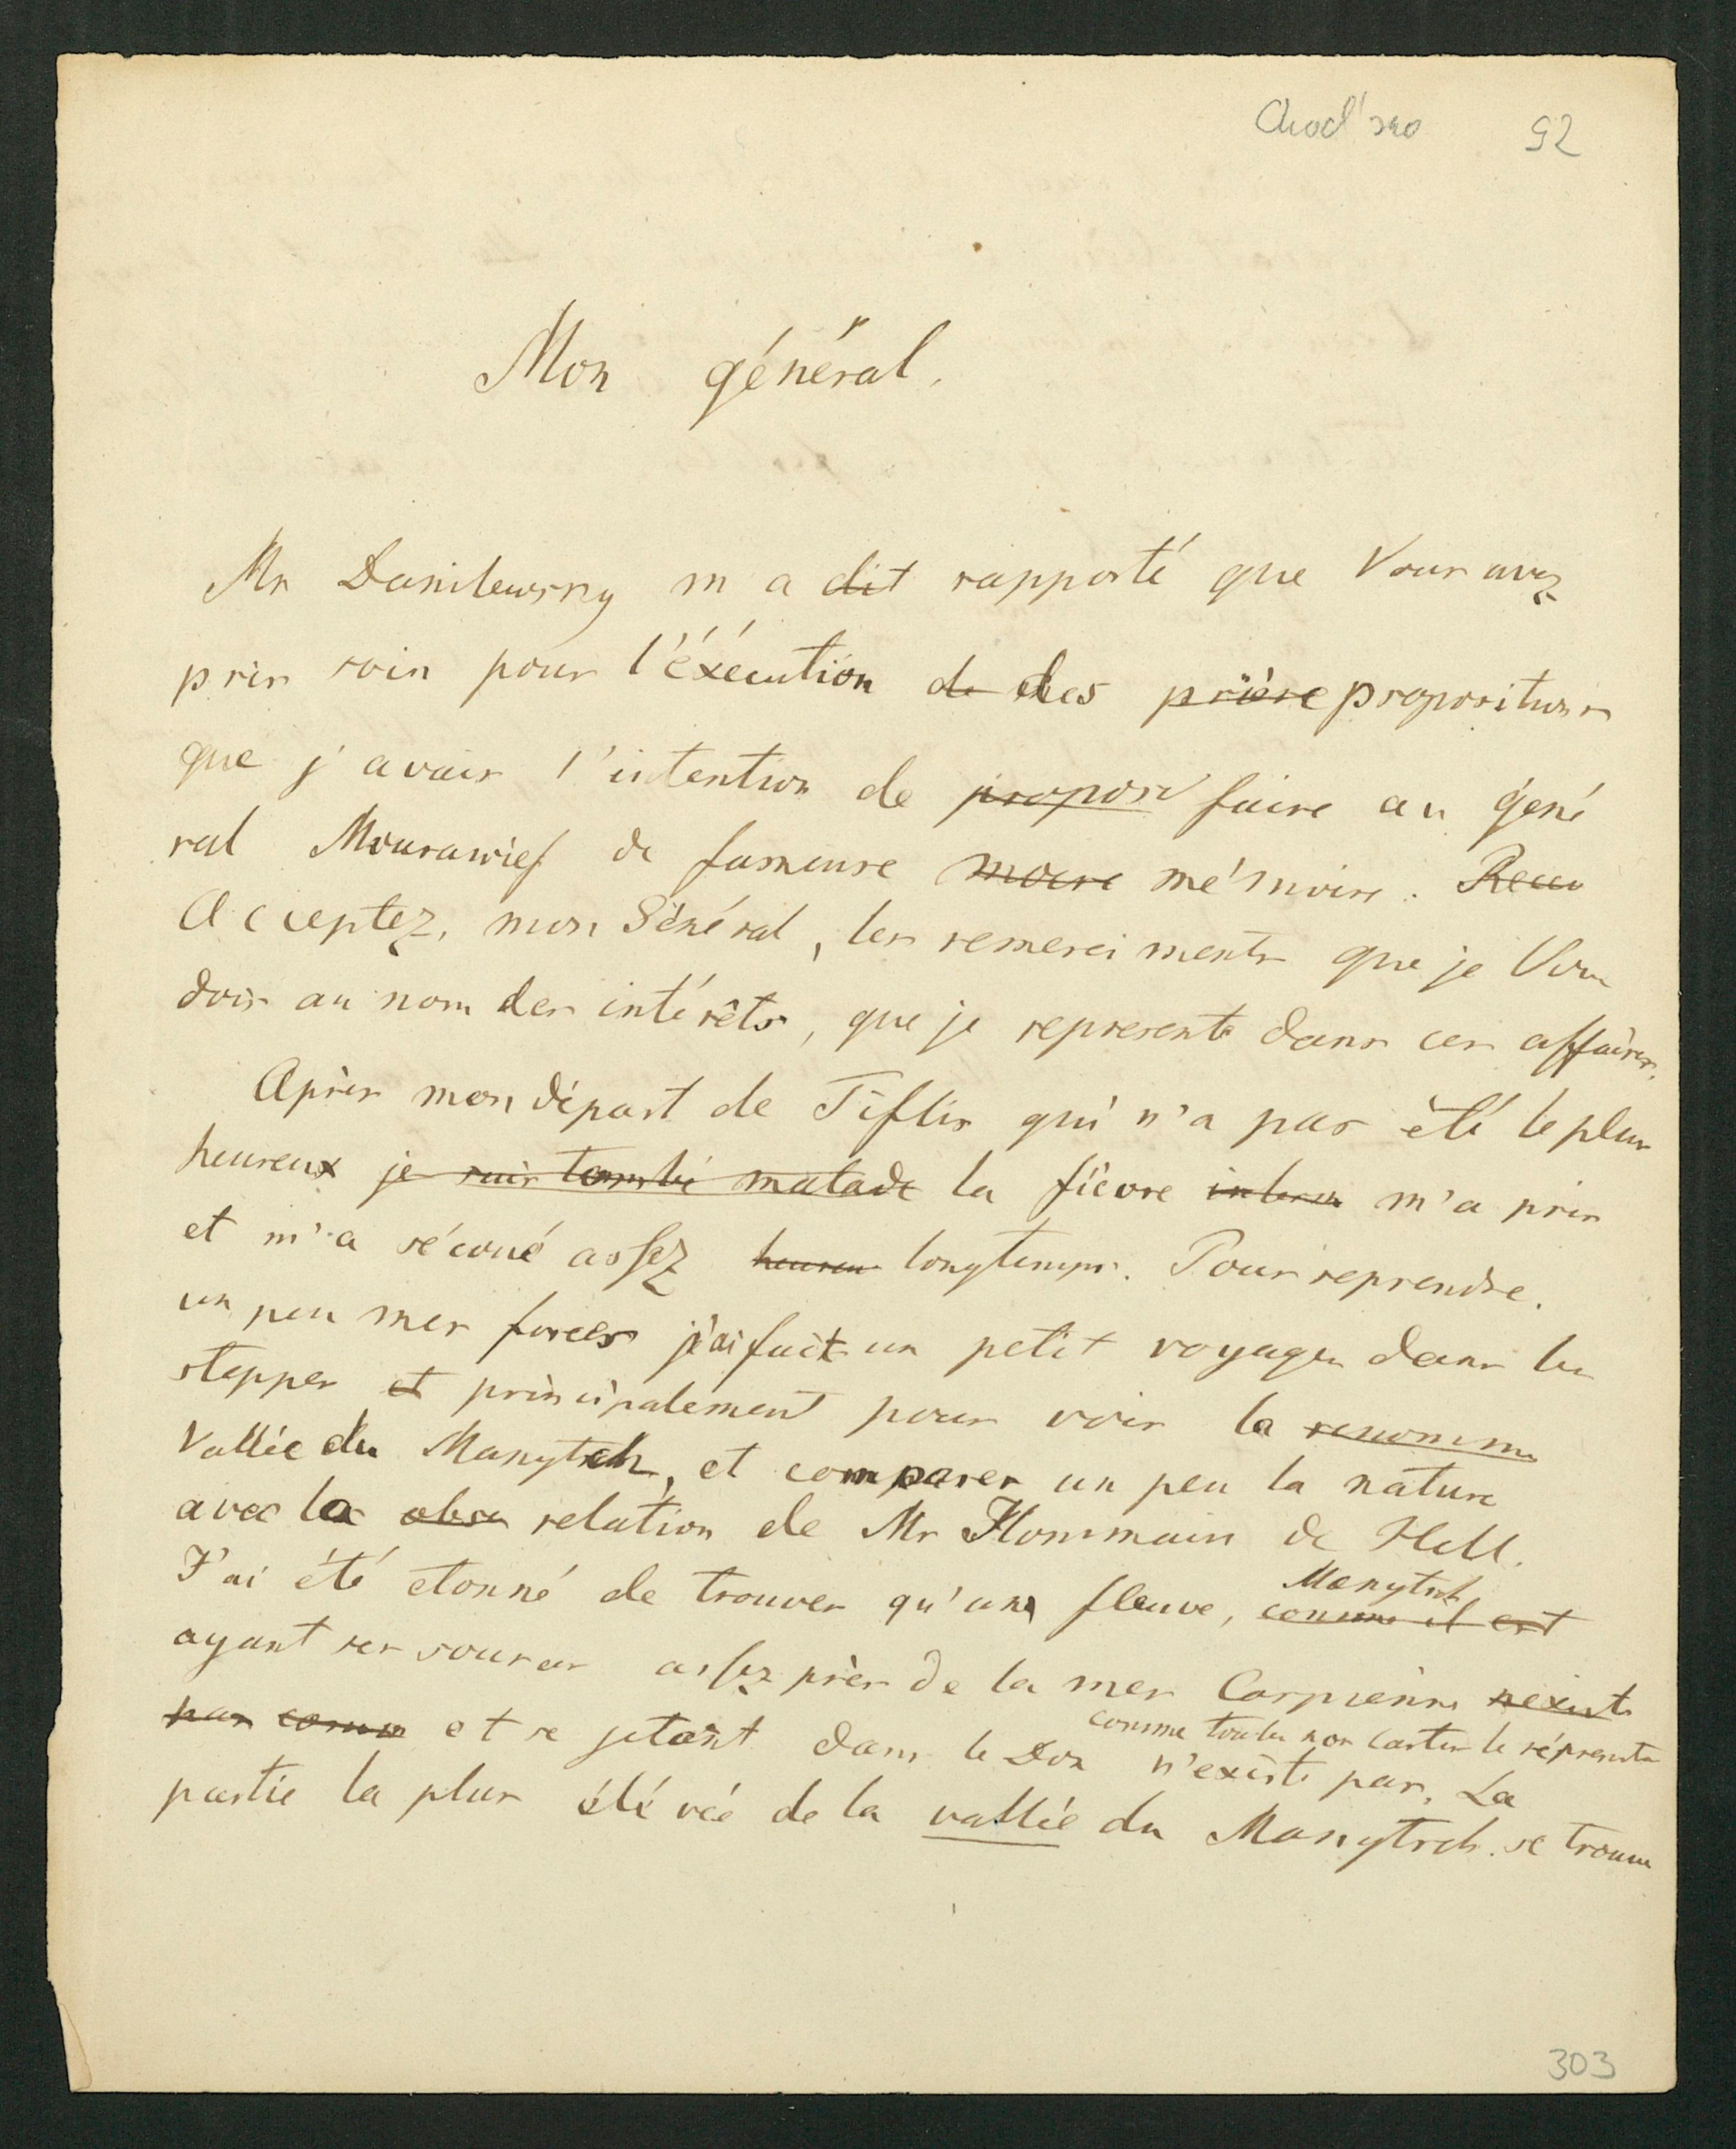 92
Mon général.
Mr Danilewsky m a dit rapporté que Vous avez
pris soin pour l'éxécution de des prière propositions
que j'avais l'intention de proposé faire au géné
ral Mourawief de fameuse mémoire. Recev
Acceptez, mon Général, les remerciments que je Vous
dois au nom des intérêts, que je represente dans ces affaires.
Après mon départ de Tiflis qui n'a pas été le plus
heureux je suis tombé malade la fièvre m'a pris
et m'a sécoué assez heureu longtemps. Pour reprendre.
un peu mes forces j'ai fait un petit voyage dans les
steppes et principalement pour voir la renomme
Vallée du Manytsch, et comparer un peu la nature
avec la obse relation de Mr Hommain de Hell.
J'ai été etonné de trouver qu'un fleuve, comme il est Manytsch
ayant ses sources assez près de la mer Caspienne nexiste
pas comme et se jetant dans le Don comme toutes nos cartes le réprésente n'existe pas. La
partie la plus élévée de la vallée du Manytsch se trouve
303